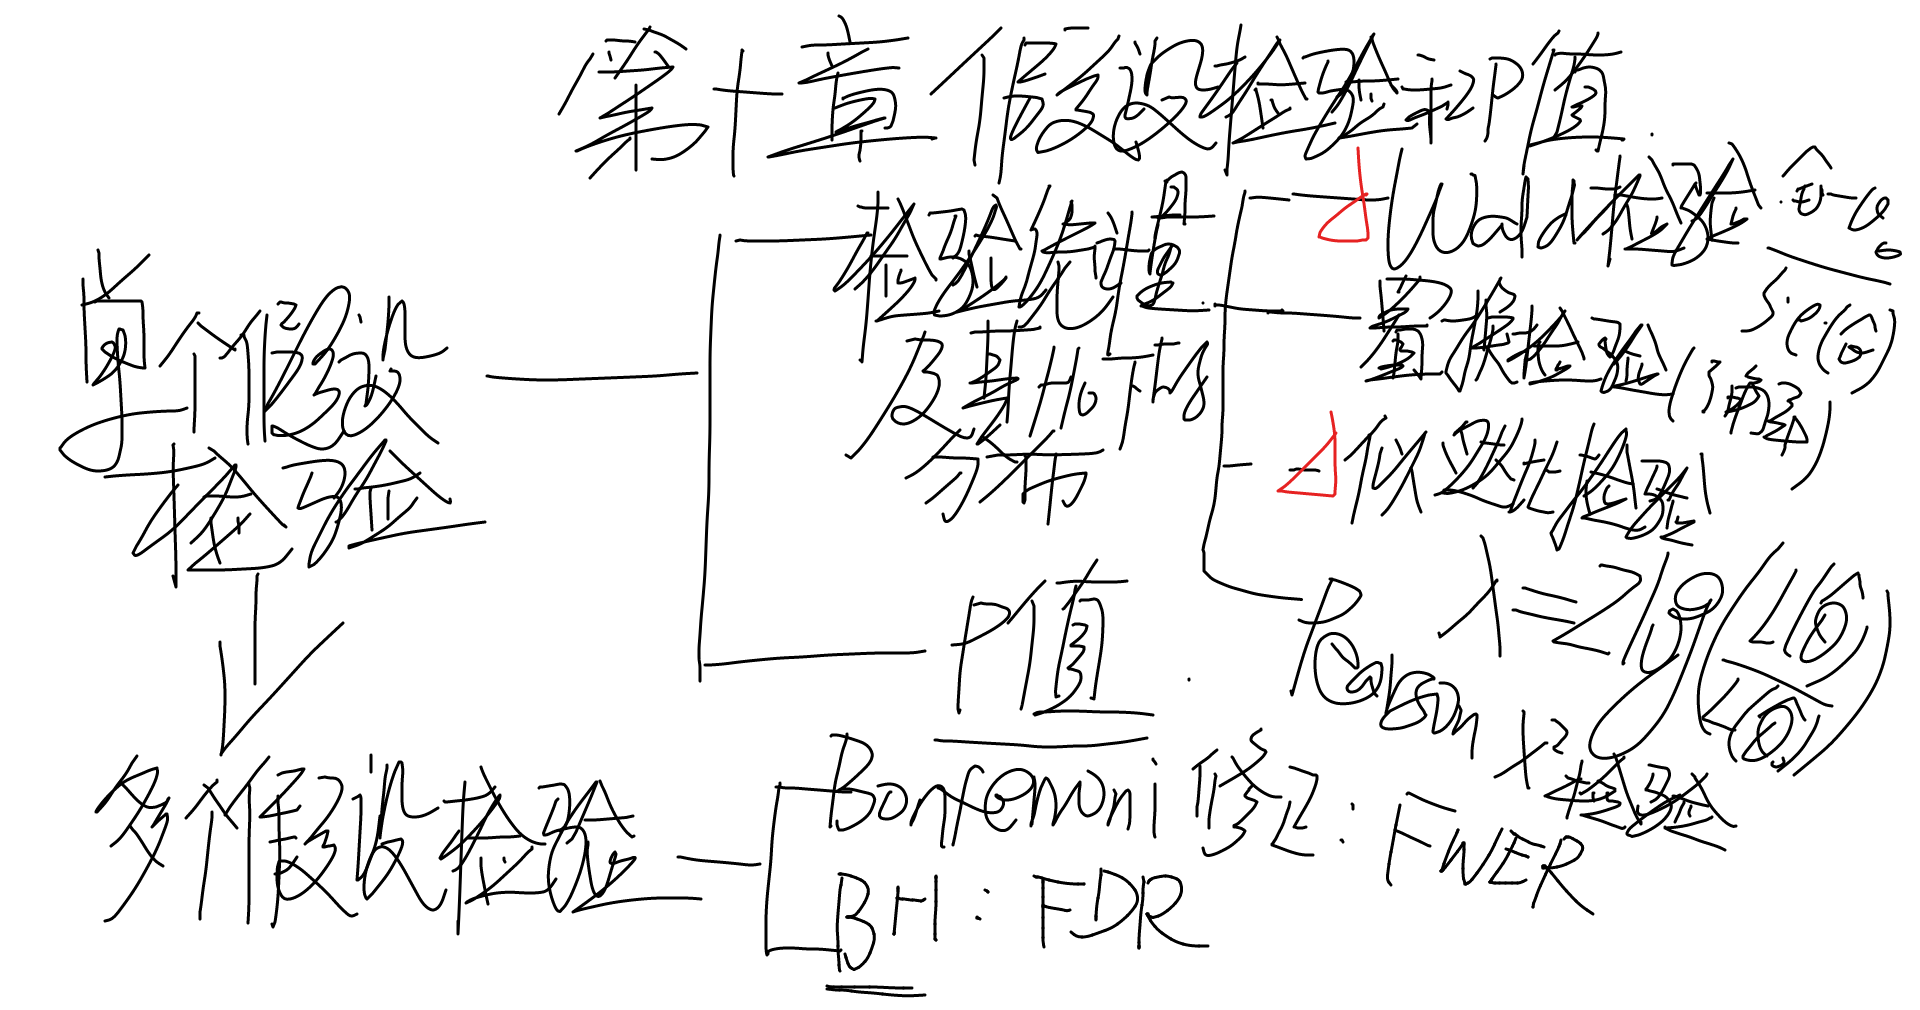 第十章 假设检验和P值
单个假设
检验
检验统计量
及其H0下的
分布
Wald检验
θ̂-θ0
se(θ̂)
置换检验
似然比检验
λ=2log(L(θ̂)/L(θ̂0))
Pearson χ²检验
P值
多个假设检验
Bonferroni修正:FWER
BH:FDR